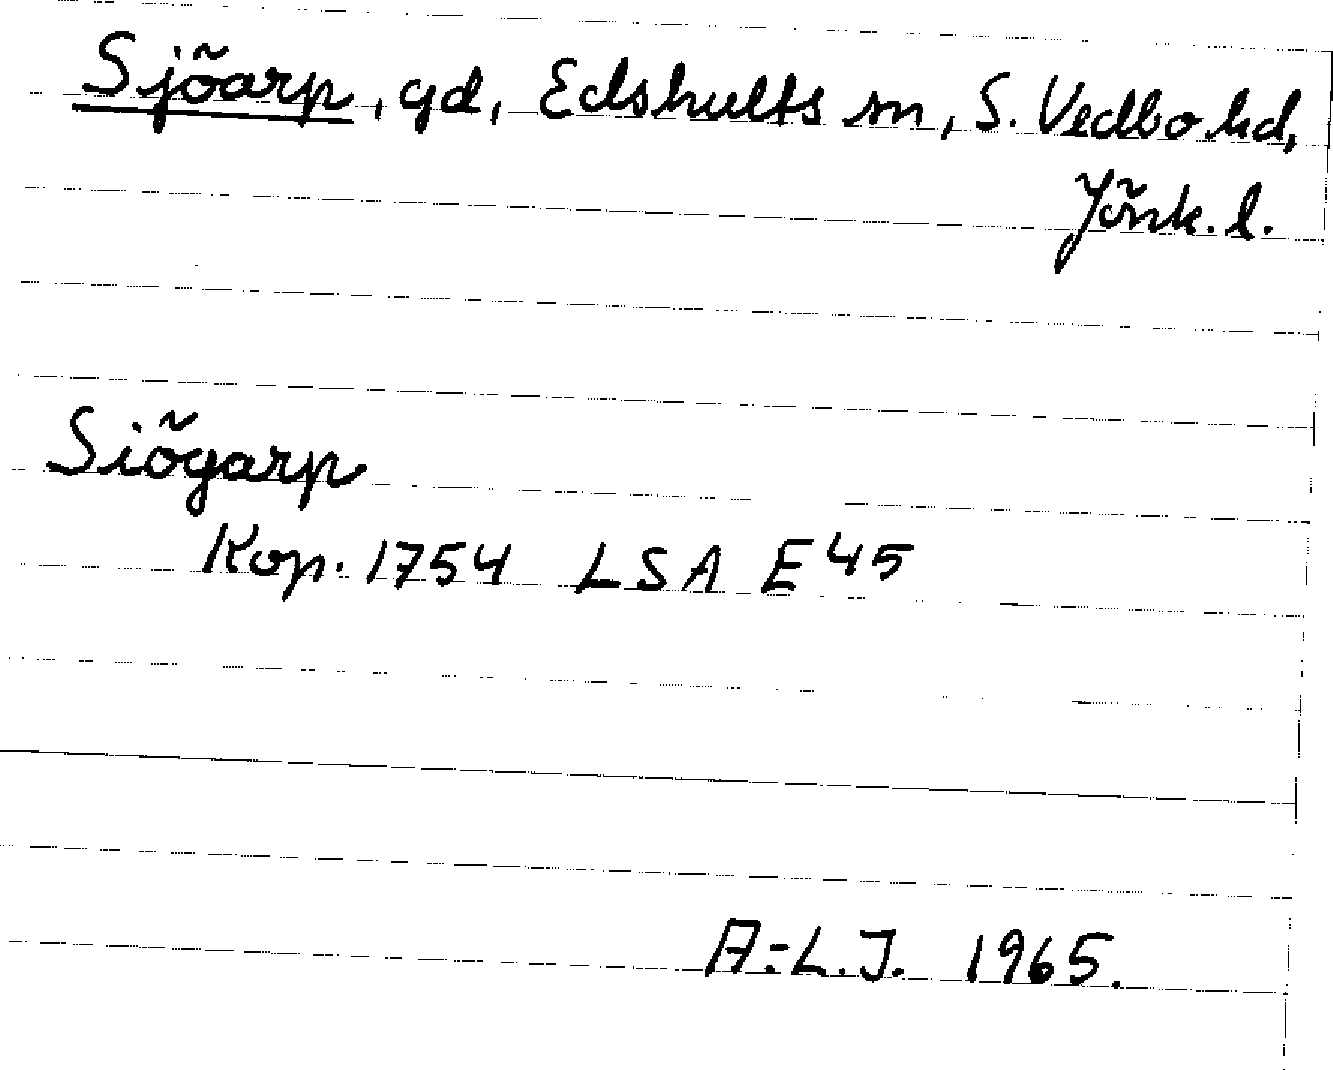 Sjöarp, gd, Edshults sn, S. Vedbo hd,
Jönk. l.
Siögarp
Kop. 1754 LSA E 45
A.-L.J. 1965.